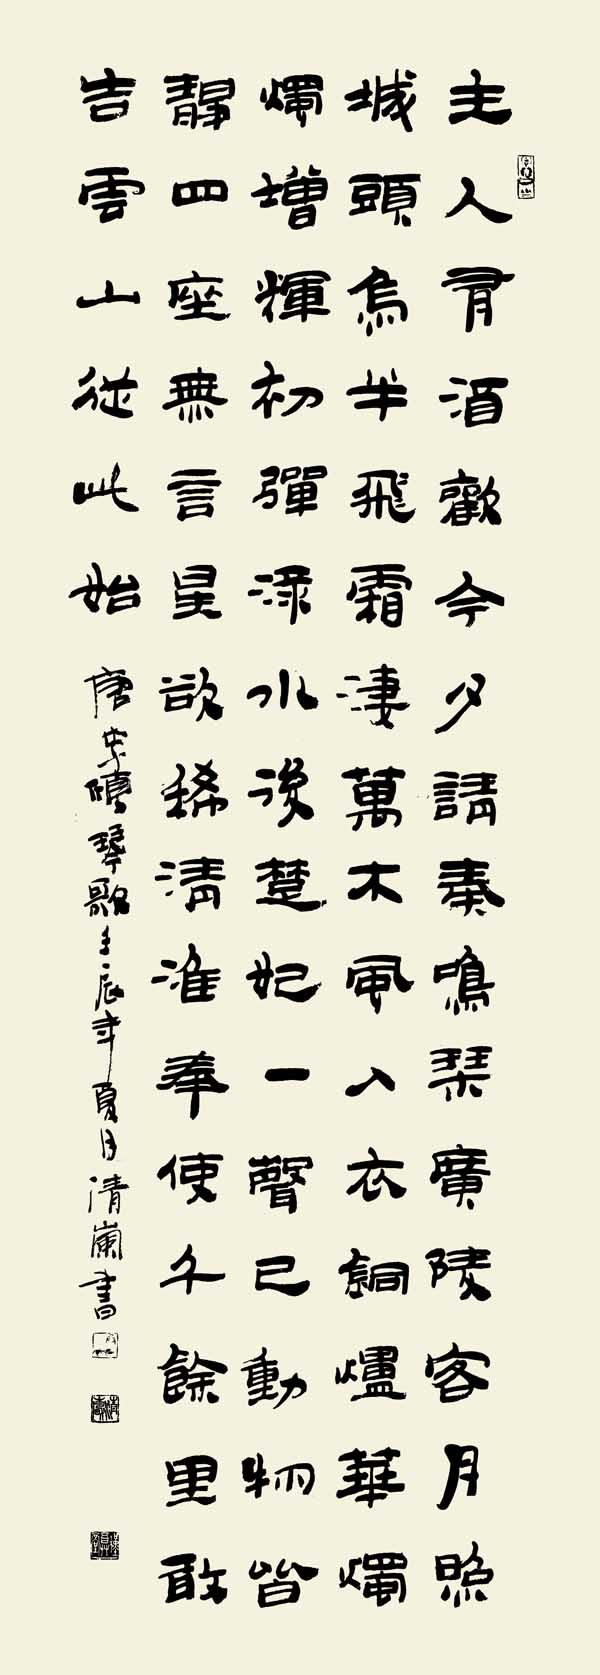 主人有酒歡今夕請奏鳴琴廣陵客月照
城頭烏半飛霜淒萬木風入衣銅爐華燭
燭增輝初彈淥水後楚妃一聲已動物皆
靜四座無言星欲稀清淮奉使千餘里敢
告雲山從此始
唐李頎琴歌壬辰年夏日清書